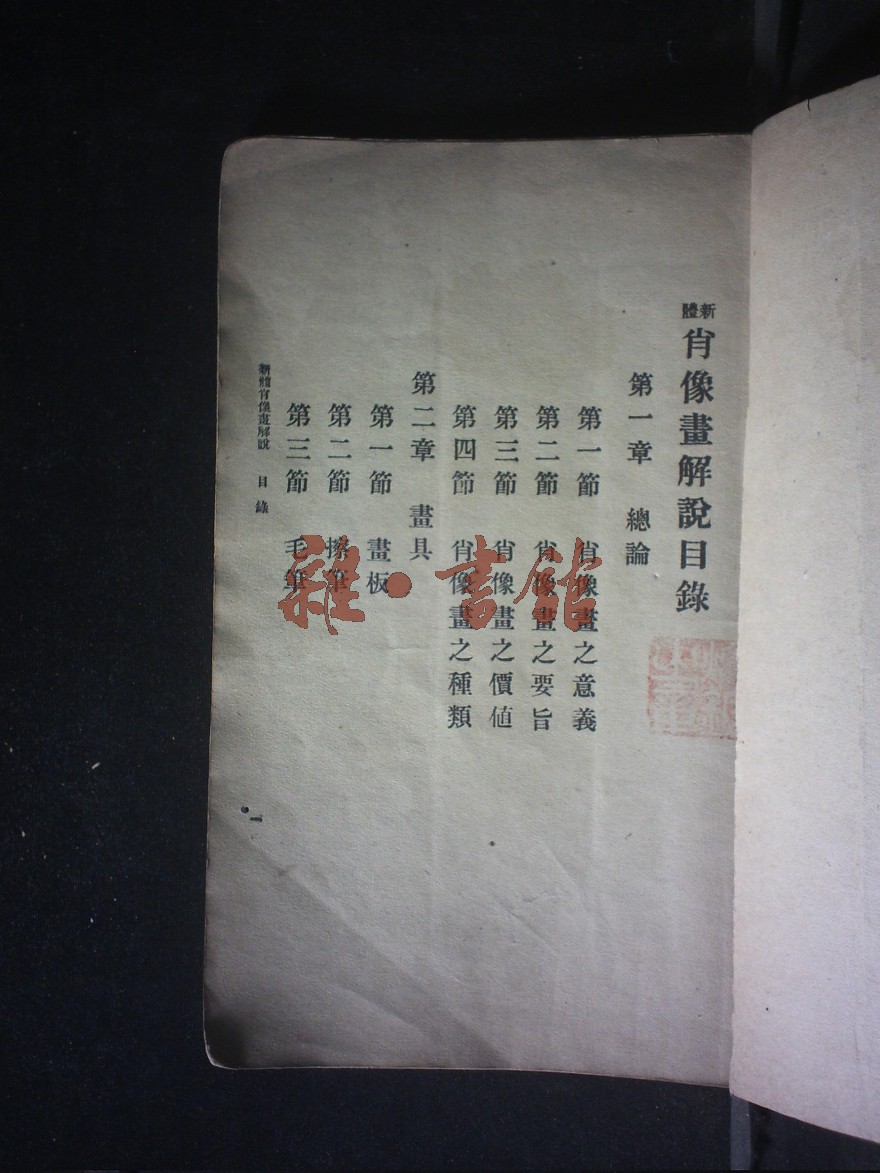 新體肖像畫解說目錄
第一章 總論
第一節 肖像畫之意義
第二節 肖像畫之要旨
第三節 肖像畫之價值
第四節 肖像畫之種類
第二章 畫具
第一節 畫板
第二節 擦筆
第三節 毛筆
新體肖像畫解說 目錄
一
雜·書館